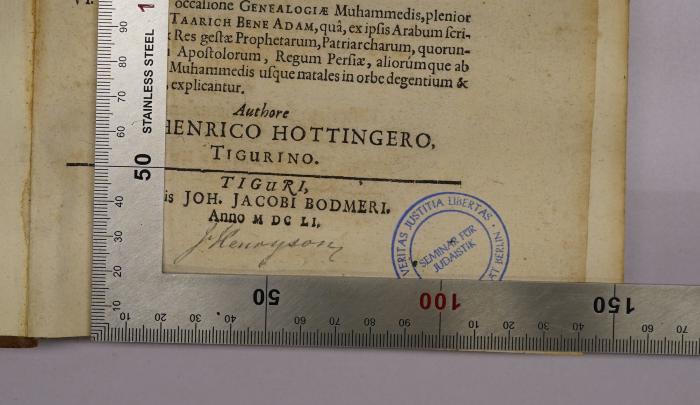 occasione GENEALOGIÆ Muhammedis, plenior
TAARICH BENE ADAM, quâ, ex ipsis Arabum scri-
Res gestæ Prophetarum, Patriarcharum, quorun-
Apostolorum, Regum Persiæ, aliorúmque ab
Muhammedis usque natales in orbe degentium &
explicantur.
Authore
HENRICO HOTTINGERO,
TIGURINO.
TIGURI,
is JOH. JACOBI BODMERI.
Anno M DC LI.
J. Henryson
VERITAS JUSTITIA LIBERTAS
SEMINAR FÜR
JUDAISTIK
AT BERLIN
STAINLESS STEEL
90
80
70
60
50
40
30
20
10
50
100
150
10
20
30
40
60
70
80
90
10
20
30
40
60
70